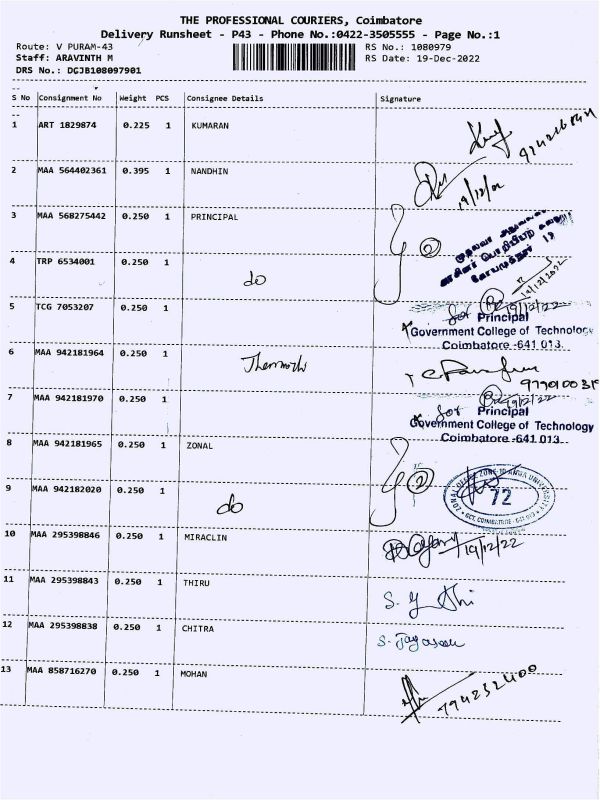 THE PROFESSIONAL COURIERS, Coimbatore
Delivery Runsheet - P43 - Phone No.:0422-3505555 - Page No.:1
Route: V PURAM-43 RS No.: 1080979
Staff: ARAVINTH M RS Date: 19-Dec-2022
DRS No.: DGJB108097901
S No Consignment No Weight PCS Consignee Details Signature
1 ART 1829874 0.225 1 KUMARAN
2 MAA 564402361 0.395 1 NANDHIN
3 MAA 568275442 0.250 1 PRINCIPAL
4 TRP 6534001 0.250 1 do
19/12/2022
5 TCG 7053207 0.250 1 for 19/12/22
Principal
Government College of Technology
Coimbatore -641 013.
6 MAA 942181964 0.250 1
7 MAA 942181970 0.250 1 for 19/12/22
Principal
Government College of Technology
Coimbatore -641 013.
8 MAA 942181965 0.250 1 ZONAL 2
72
9 MAA 942182020 0.250 1 do
10 MAA 295398846 0.250 1 MIRACLIN 19/12/22
11 MAA 295398843 0.250 1 THIRU
12 MAA 295398838 0.250 1 CHITRA
13 MAA 858716270 0.250 1 MOHAN